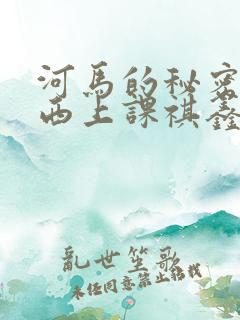 河馬的秘密
西上課祺鑫
亂世笙歌
未经同意禁止转载